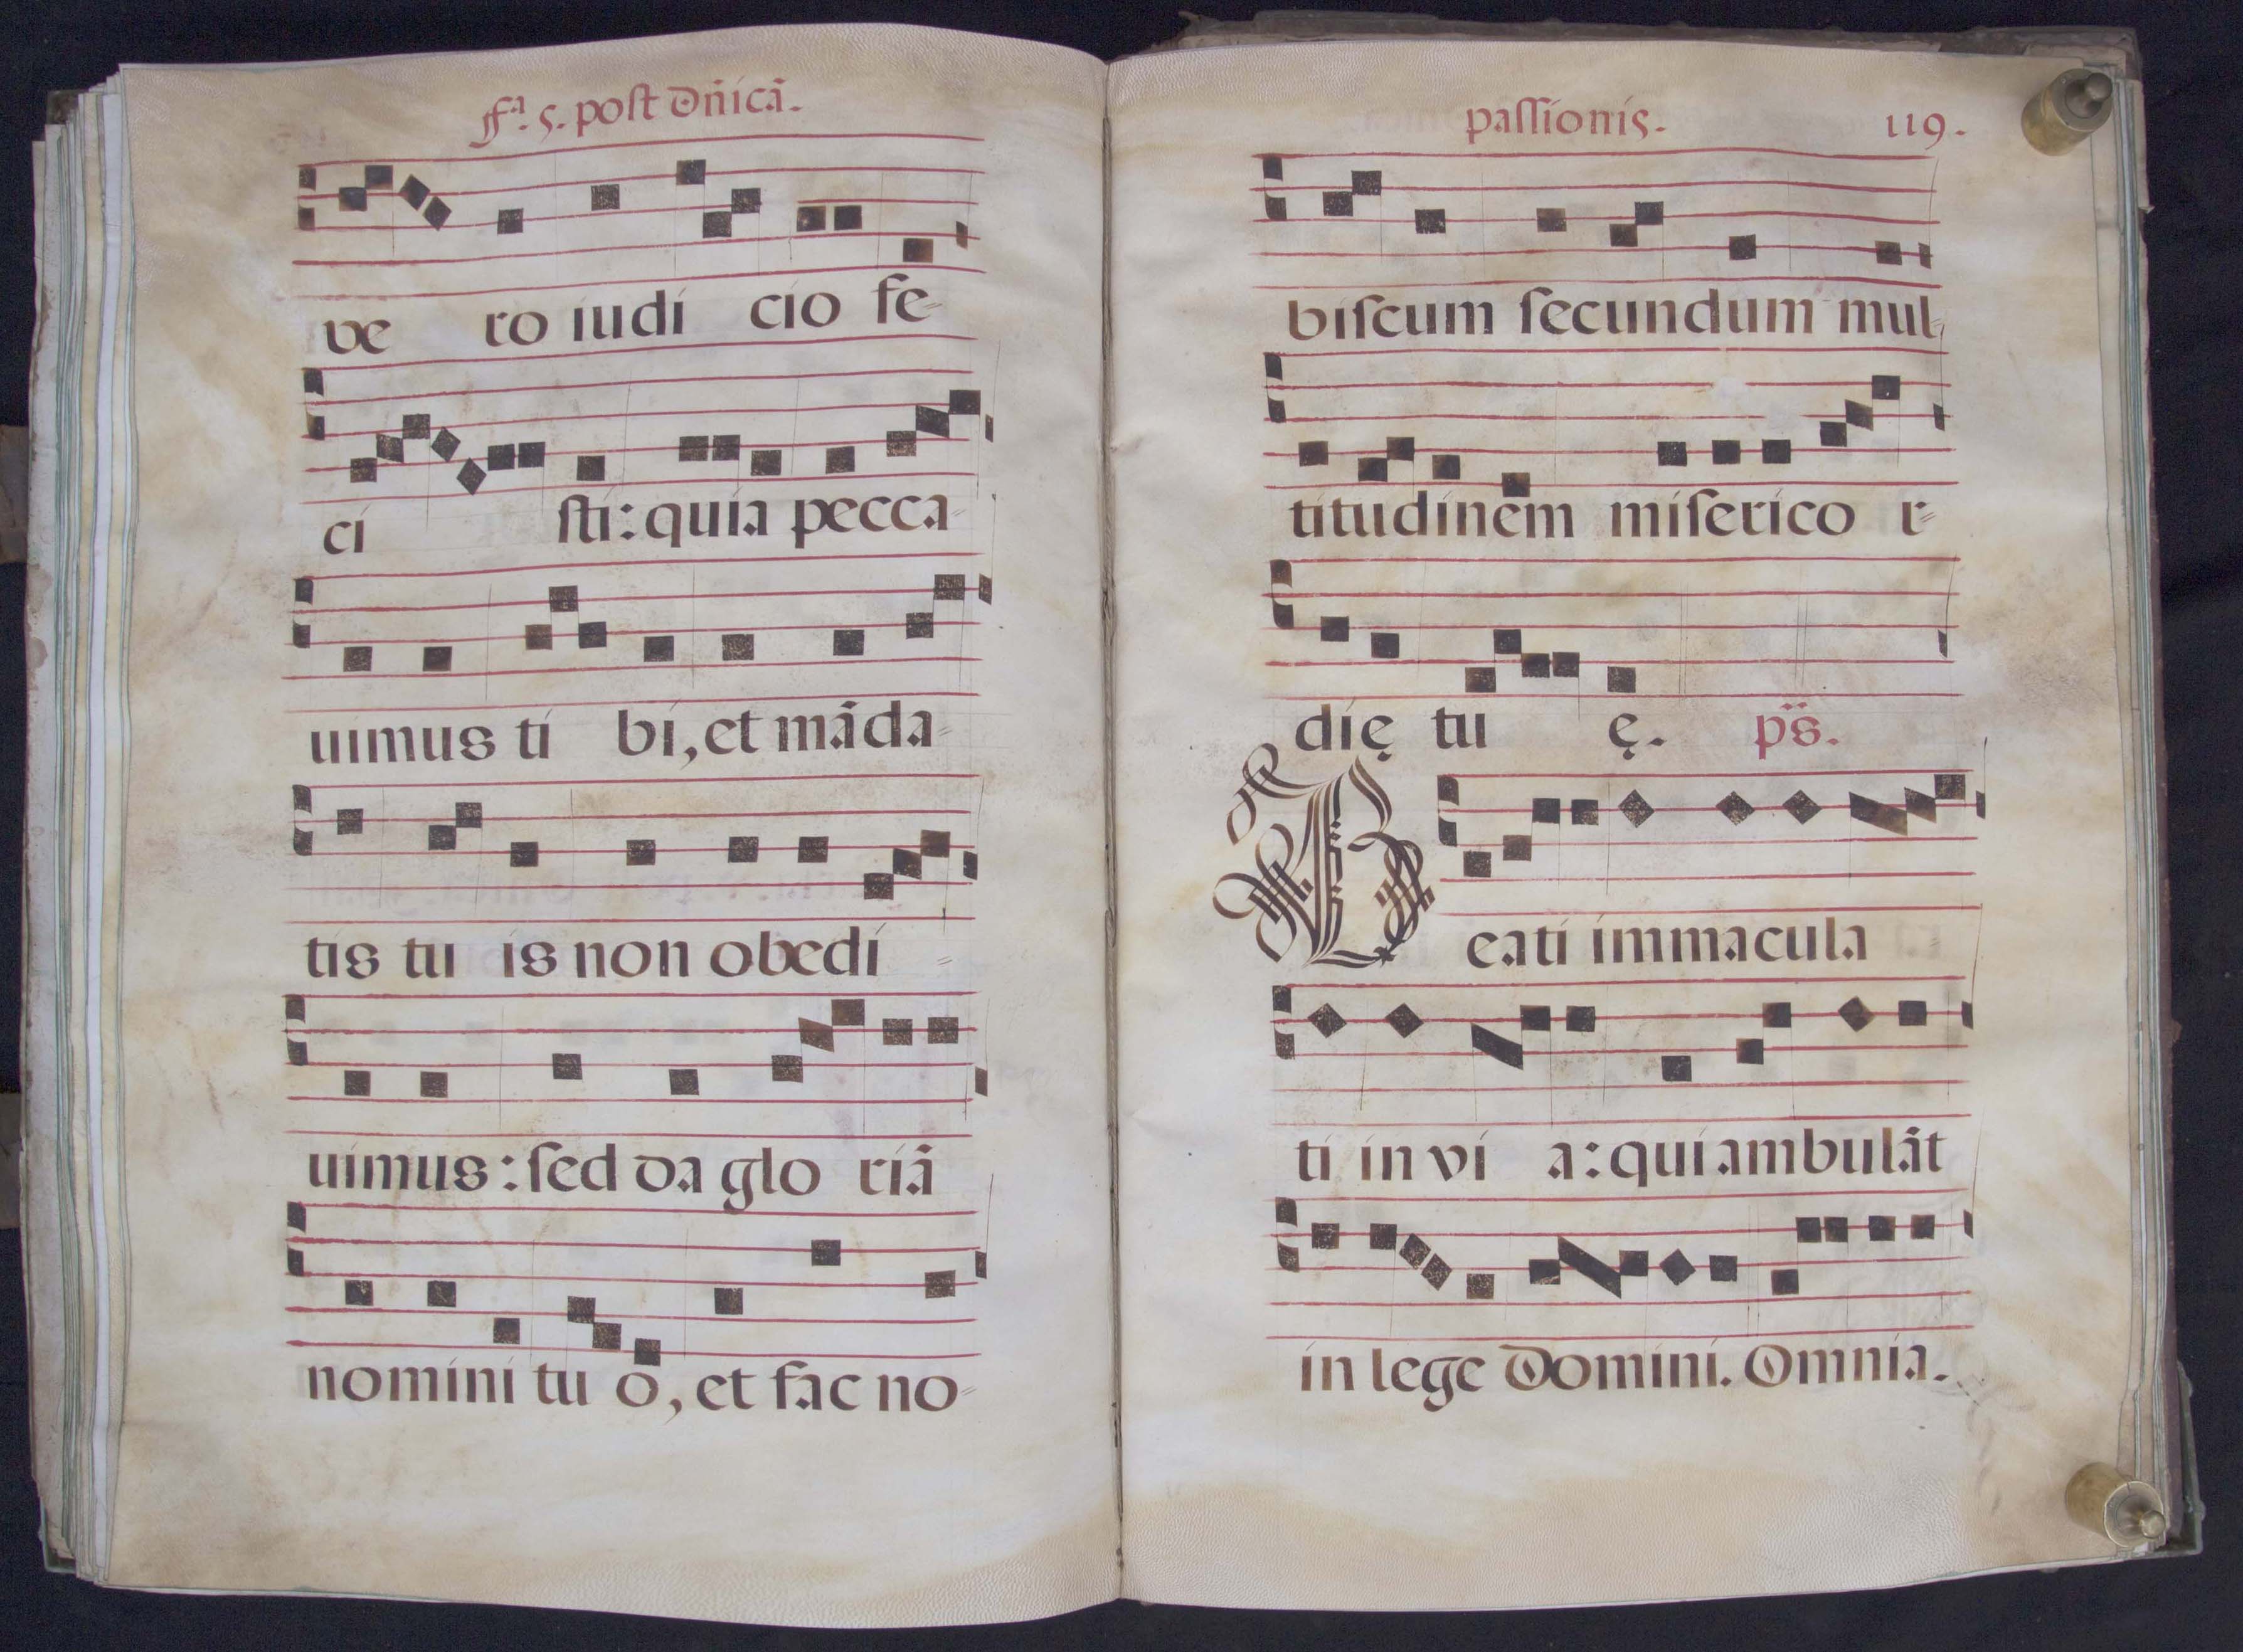 ffª. 5. poſt dñicã.
ve ro iudi cio fe=
ci ſti: quia pecca=
uimus ti bi, et mãda=
tis tu is non obedi =
uimus: ſed da glo riã
nomini tu o, et fac no=
paſſionis. 119.
biſcum ſecundum mul=
titudinem miſerico r=
dię tu ę. ps.
Beati immacula =
ti in vi a: qui ambulãt
in lege Domini. Omnia.